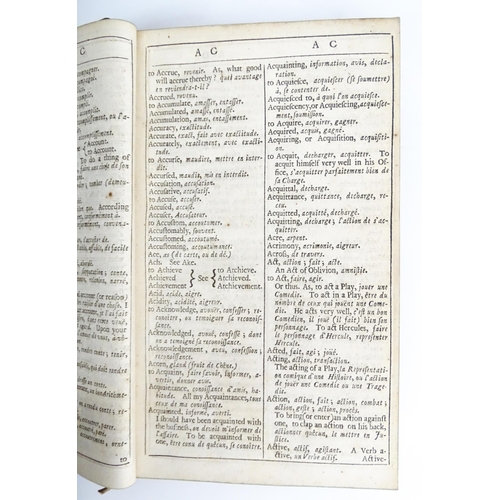 A C
A C
to Accrue, revenir. As, what good
will accrue thereby? quel avantage
en reviendra-t-il?
Accrued, revenu.
to Accumulate, amasser, entasser.
Accumulated, amassé, entassé.
Accumulation, amas, entassement.
Accuracy, exactitude.
Accurate, exact, fait avec exactitude.
Accurately, exactement, avec exacti-
tude.
to Accurse, maudire, mettre en inter-
dit.
Accursed, maudit, mis en interdit.
Accusation, accusation.
Accusative, accusatif.
to Accuse, accuser.
Accused, accusé.
Accuser, Accusateur.
to Accustom, accoutumer.
Accustomably, souvent.
Accustomed, accoutumé.
Accustoming, accoutumance.
Ace, as (de carte, ou de dé.)
Ach. See Ake.
to Achieve
Achieved
Achievement
See
to Atchieve.
Atchieved.
Atchievement.
Acid, acide, aigre.
Acidity, acidité, aigreur.
to Acknowledge, avouër, confesser; re-
connoitre, ou temoigner sa reconoiss-
sance.
Acknowledged, avoué, confessé; dont
on a temoigné sa reconoissance.
Acknowledgement, aveu, confession;
reconoissance.
Acorn, gland (fruit de Chêne.)
to Acquaint, faire savoir, informer, a-
vertir, donner avis.
Acquaintance, conoissance d'amis, ha-
bitude. All my Acquaintances, tous
ceux de ma conoissance.
Acquainted, informé, averti.
I should have been acquainted with
the business, on devoit m'informer de
l'affaire. To be acquainted with
one, être conu de quêcun, se conoître.
Acquainting, information, avis, decla-
ration.
to Acquiesce, acquiescer (se soumettre)
à, se contenter de.
Acquiesced to, à quoi l'on acquiesce.
Acquiescency, or Acquiescing, acquiesce-
ment, soumission.
to Acquire, acquerir, gagner.
Acquired, acquis, gagné.
Acquiring, or Acquisition, acquisi-
tion.
to Acquit, decharger, acquitter. To
acquit himself very well in his Of-
fice, s'acquitter parfaitement bien de
sa Charge.
Acquittal, decharge.
Acquittance, quittance, decharge, re-
ceu.
Acquitted, acquitté, decharge.
Acquitting, decharge; l'action de s'ac-
quitter.
Acre, arpent.
Acrimony, acrimonie, aigreur.
Across, de travers.
Act, action; fait; acte.
An Act of Oblivion, amnistie.
to Act, agir.
Or thus. As, to act a Play, jouër une
Comedie. To act in a Play, être du
nombre de ceux qui jouënt une Co-
medie. He acts very well, c'est un bon
Comedien, il joué (il fait) bien son
personnage. To act Hercules, faire
le personnage d'Hercule, representer
Hercule.
Acted, fait, agi; joué.
Acting, action, transaction.
The acting of a Play, la Representati-
on comique d'une Histoire, ou l'action
de jouër une Comedie ou une Trage-
die.
Action, action, fait; action, combat;
action, geste; action, procès.
To bring (or enter) an action against
one, to clap an action on his back,
actionner quêcun, le mettre en Ju-
stice.
Active, actif, agissant. A Verb a-
ctive, un Verbe actif.
Active-